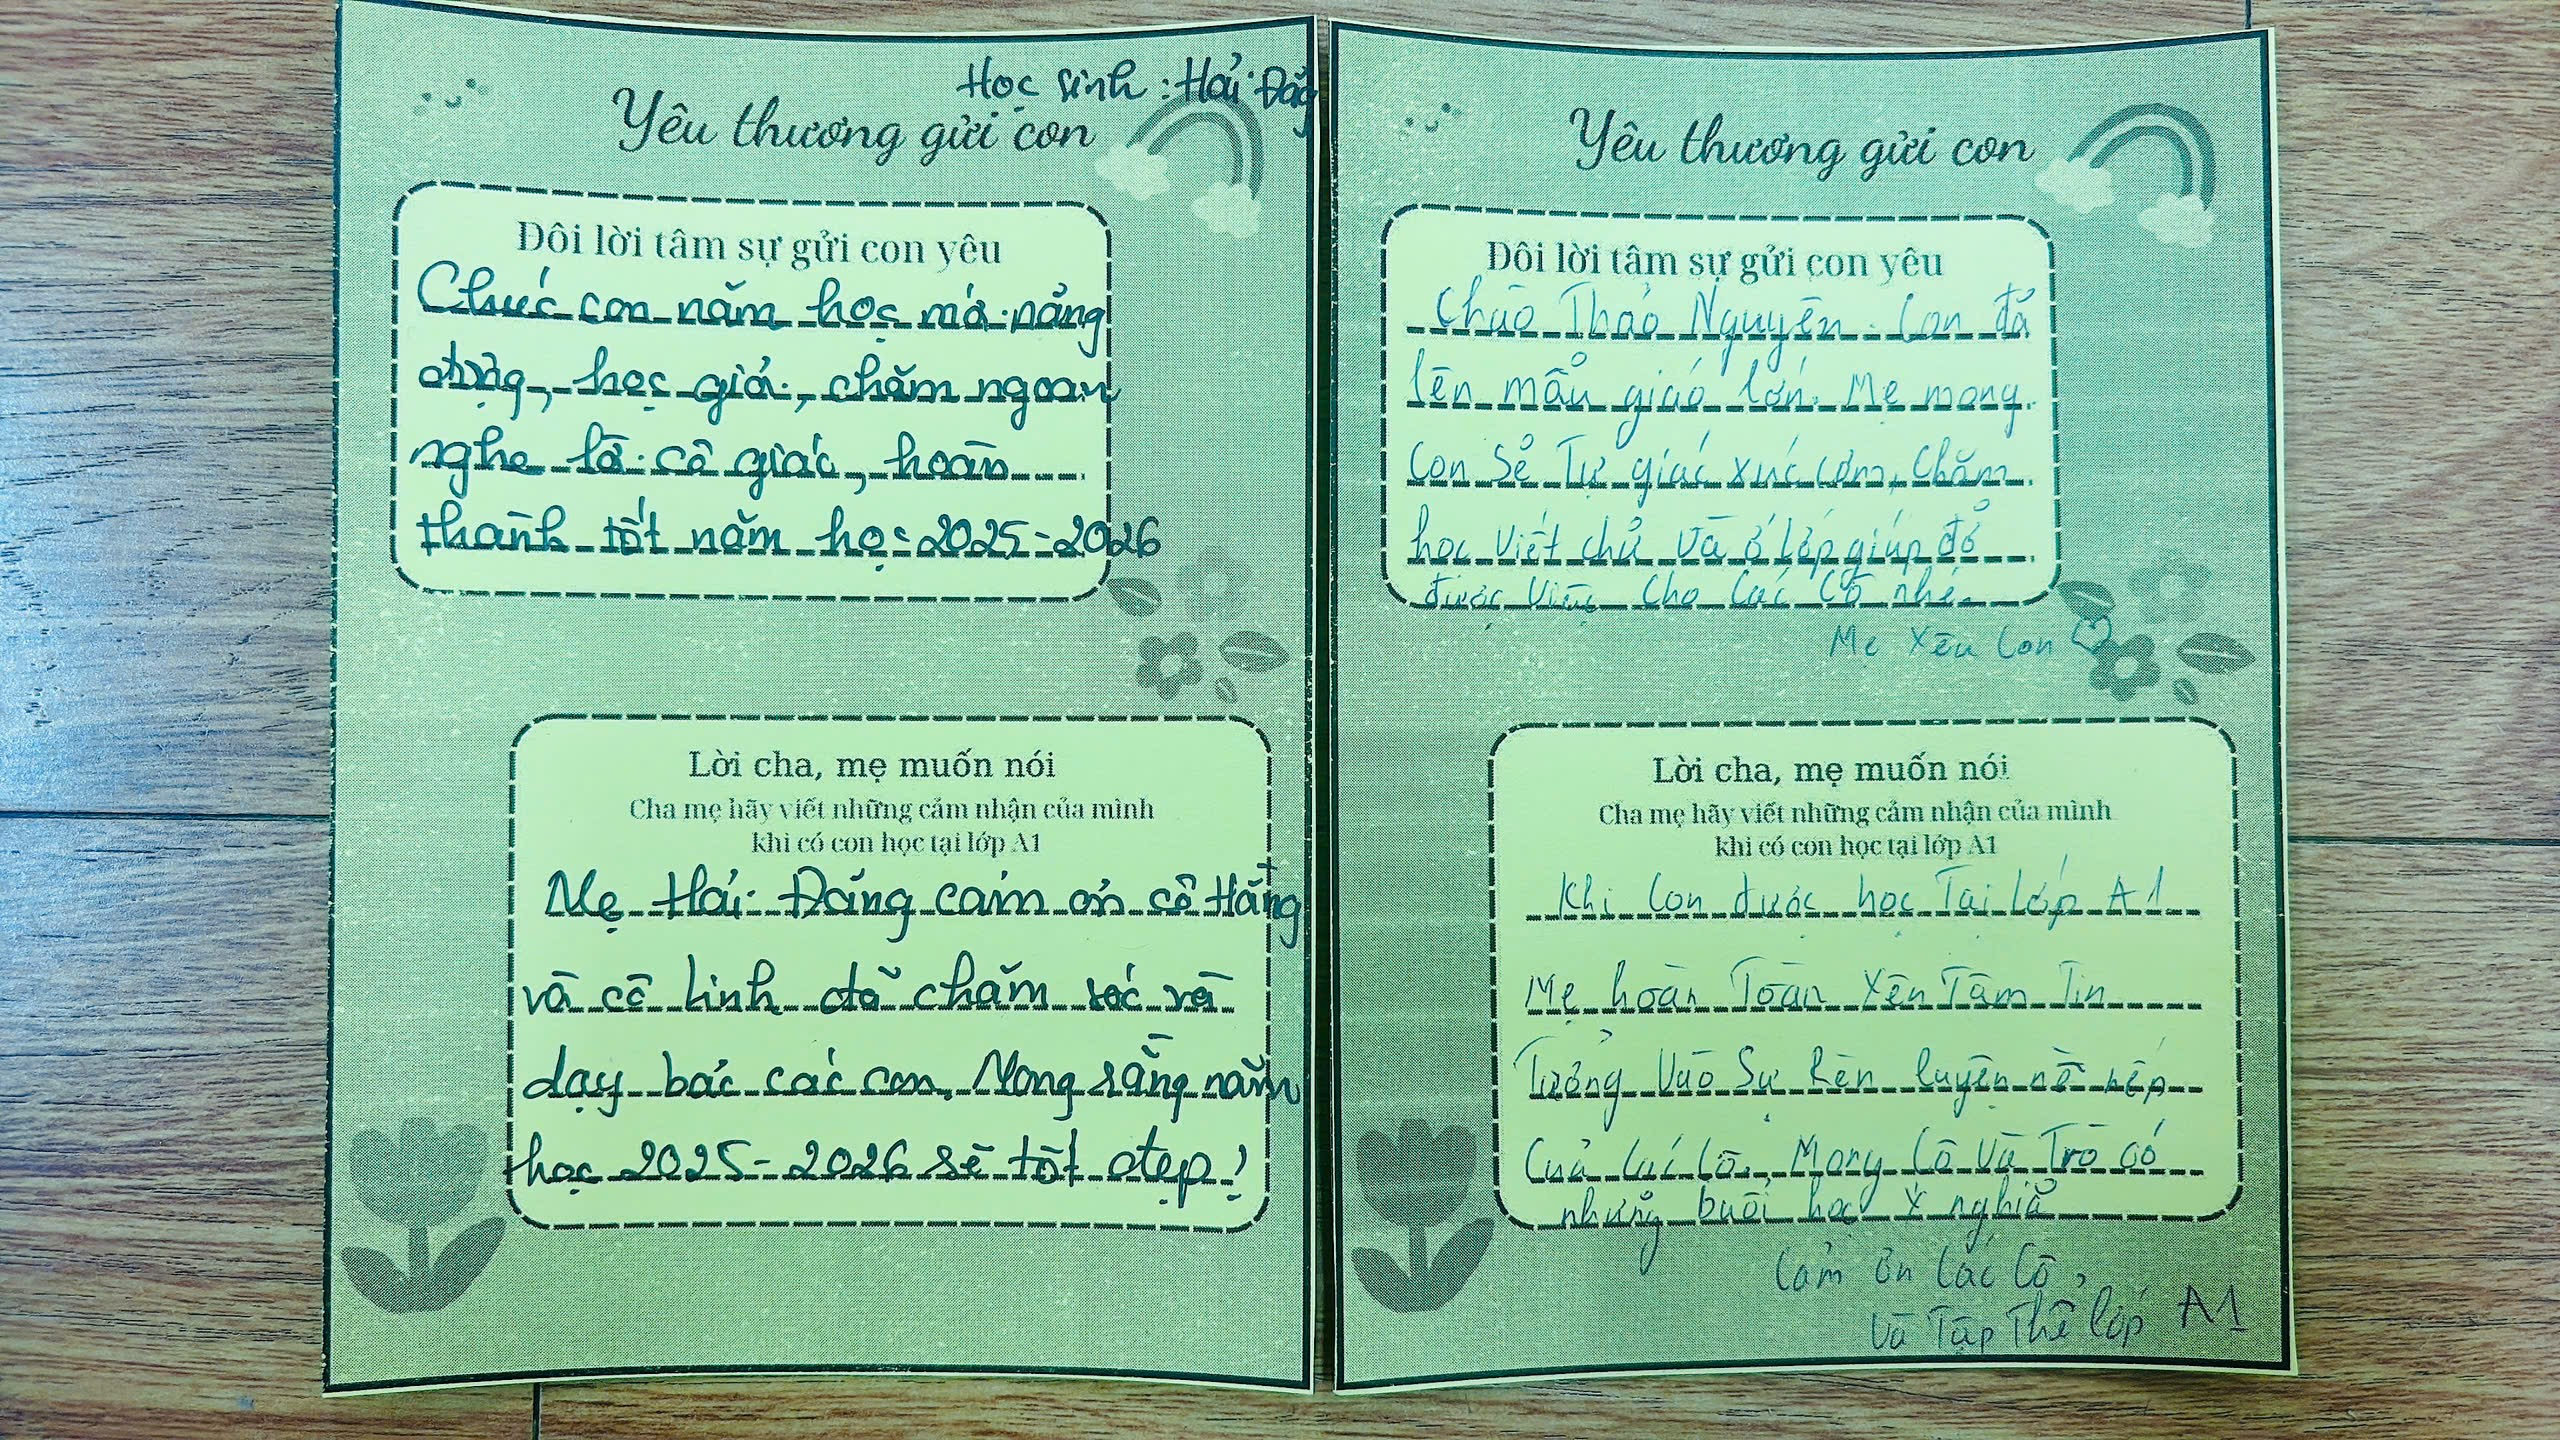 Học sinh: Hải Đăng
Yêu thương gửi con
Đôi lời tâm sự gửi con yêu
Chúc con năm học mới năng
động, học giỏi, chăm ngoan
nghe lời cô giáo, hoàn
thành tốt năm học 2025-2026
Lời cha, mẹ muốn nói
Cha mẹ hãy viết những cảm nhận của mình
khi có con học tại lớp A1
Mẹ Hải Đăng cảm ơn cô Hằng
và cô Linh đã chăm sóc và
dạy bảo các con. Mong rằng năm
học 2025-2026 sẽ tốt đẹp!
Yêu thương gửi con
Đôi lời tâm sự gửi con yêu
Chào Thảo Nguyên. Con đã
lên mẫu giáo lớn. Mẹ mong
con sẽ Tự giác xúc cơm, chăm
học viết chữ và ở lớp giúp đỡ
được việc cho các cô nhé.
Mẹ yêu con
Lời cha, mẹ muốn nói
Cha mẹ hãy viết những cảm nhận của mình
khi có con học tại lớp A1
Khi con được học Tại lớp A1
Mẹ hoàn Toàn yên Tâm Tin
Tưởng vào sự rèn luyện nề nếp
của các cô. Mong cô và Trò có
những buổi học ý nghĩa
Cảm ơn các cô,
và Tập Thể lớp A1